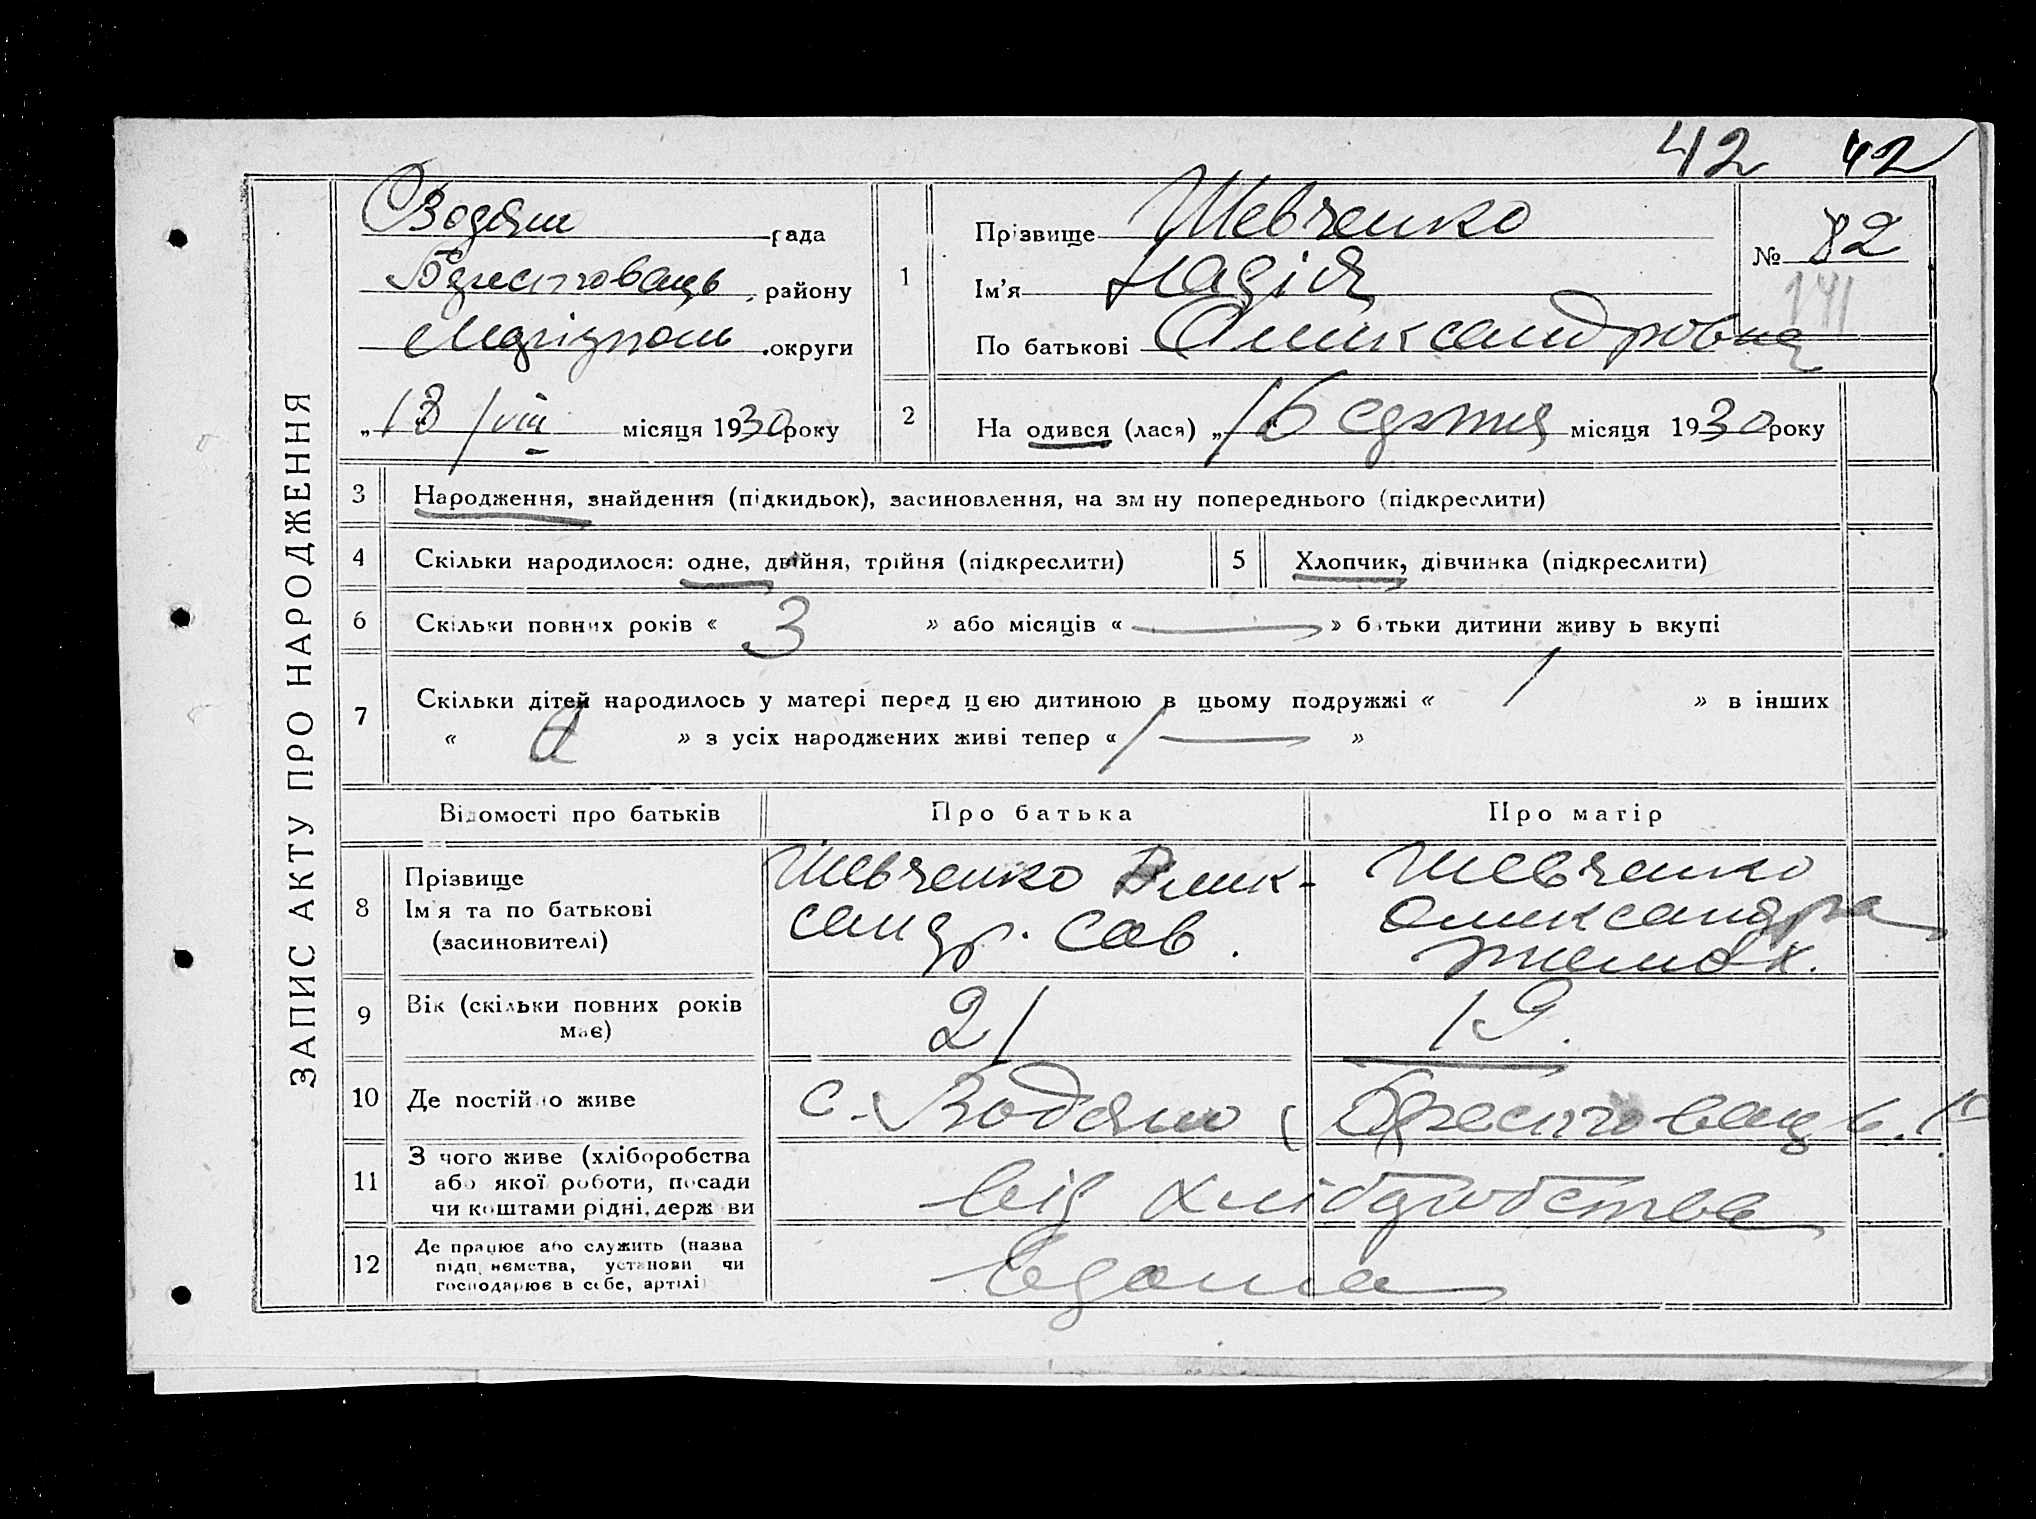 42 42
ЗАПИС АКТУ ПРО НАРОДЖЕННЯ
Водяна рада
району
округи
„18/VIII місяця 1930 року
1
Прізвище Шевченко
Ім'я Надія
По батькові Олександровна
№ 82
141
2
На одився (лася) „16 серпня місяця 1930 року
3 Народження, знайдення (підкидьок), засиновлення, на зм ну попереднього (підкреслити)
4 Скільки народилося: одне, двійня, трійня (підкреслити) 5 Хлопчик, дівчинка (підкреслити)
6 Скільки повних років « 3 » або місяців « — » б тьки дитини живу ь вкупі
7 Скільки дітей народилось у матері перед ц єю дитиною в цьому подружжі « 1 » в інших
« » з усіх народжених живі тепер « 1 — »
Відомості про батьків Про батька Про матір
8
Прізвище
Ім'я та по батькові
(засиновителі)
Шевченко Олик-
сандр. Сав.
Шевченко
Олександра
9 Вік (скільки повних років
має)
21 19.
10 Де постійно живе с. Водяно
11 З чого живе (хліборобства
або якої роботи, посади
чи коштами рідні, держ ви
від хліборобства
12 Де працює або служить (назва
підп иємства, установи чи
господарює в себе, артілі
вдома